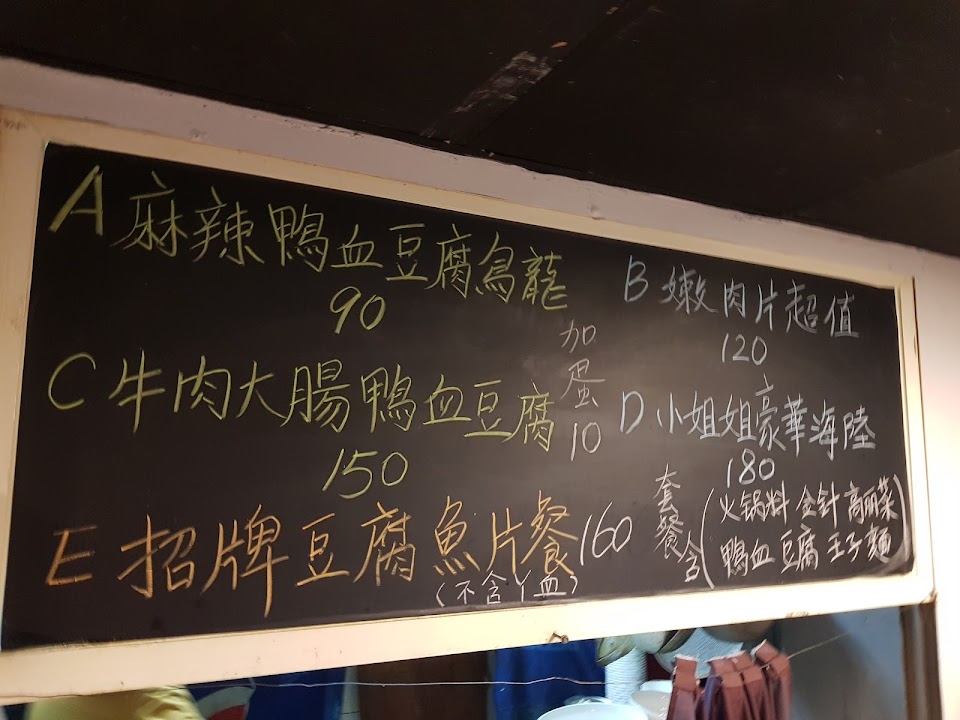 A 麻辣鴨血豆腐烏龍
90
B 嫩肉片超值
120
C 牛肉大腸鴨血豆腐
150
加蛋10
D 小姐姐豪華海陸
180
E 招牌豆腐魚片餐 160
(不含丫血)
套餐含
(火锅料 金針 高丽菜
鴨血 豆腐 王子麵)